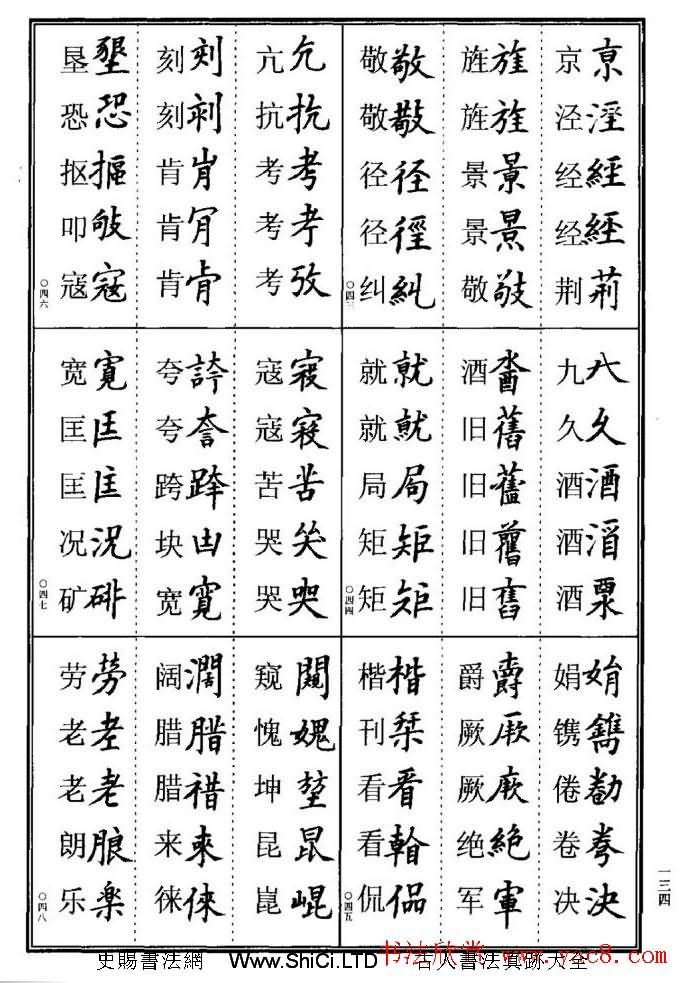 京亰泾涇经經经經荆荊
旌旌旌旌景景景景敬敬
敬敬敬敬径径径徑纠糺
〇四三
九久久酒酒酒酒
酒旧舊旧旧舊旧
就就就就局局矩矩矩矩
〇四四
娟娟镌鐫倦卷决決
爵爵厥厥厥绝絶军軍
楷楷刊栞看看看侃侃
〇四五
亢抗抗考考考考攷
刻刻刻肯肯肯
垦墾恐恐抠摳叩敂寇寇
〇四六
寇寇苦苦哭哭哭
夸誇夸跨跨块凷宽寛
宽寬匡匡匡况況矿
〇四七
窥闚愧媿坤堃昆昆崐
阔濶腊腊腊来來徕倈
劳劳老老老朗乐楽
〇四八
一三四
史賜書法網 Www.ShiCi.LTD 古人書法真跡大全
书法欣赏 www.yac8.com